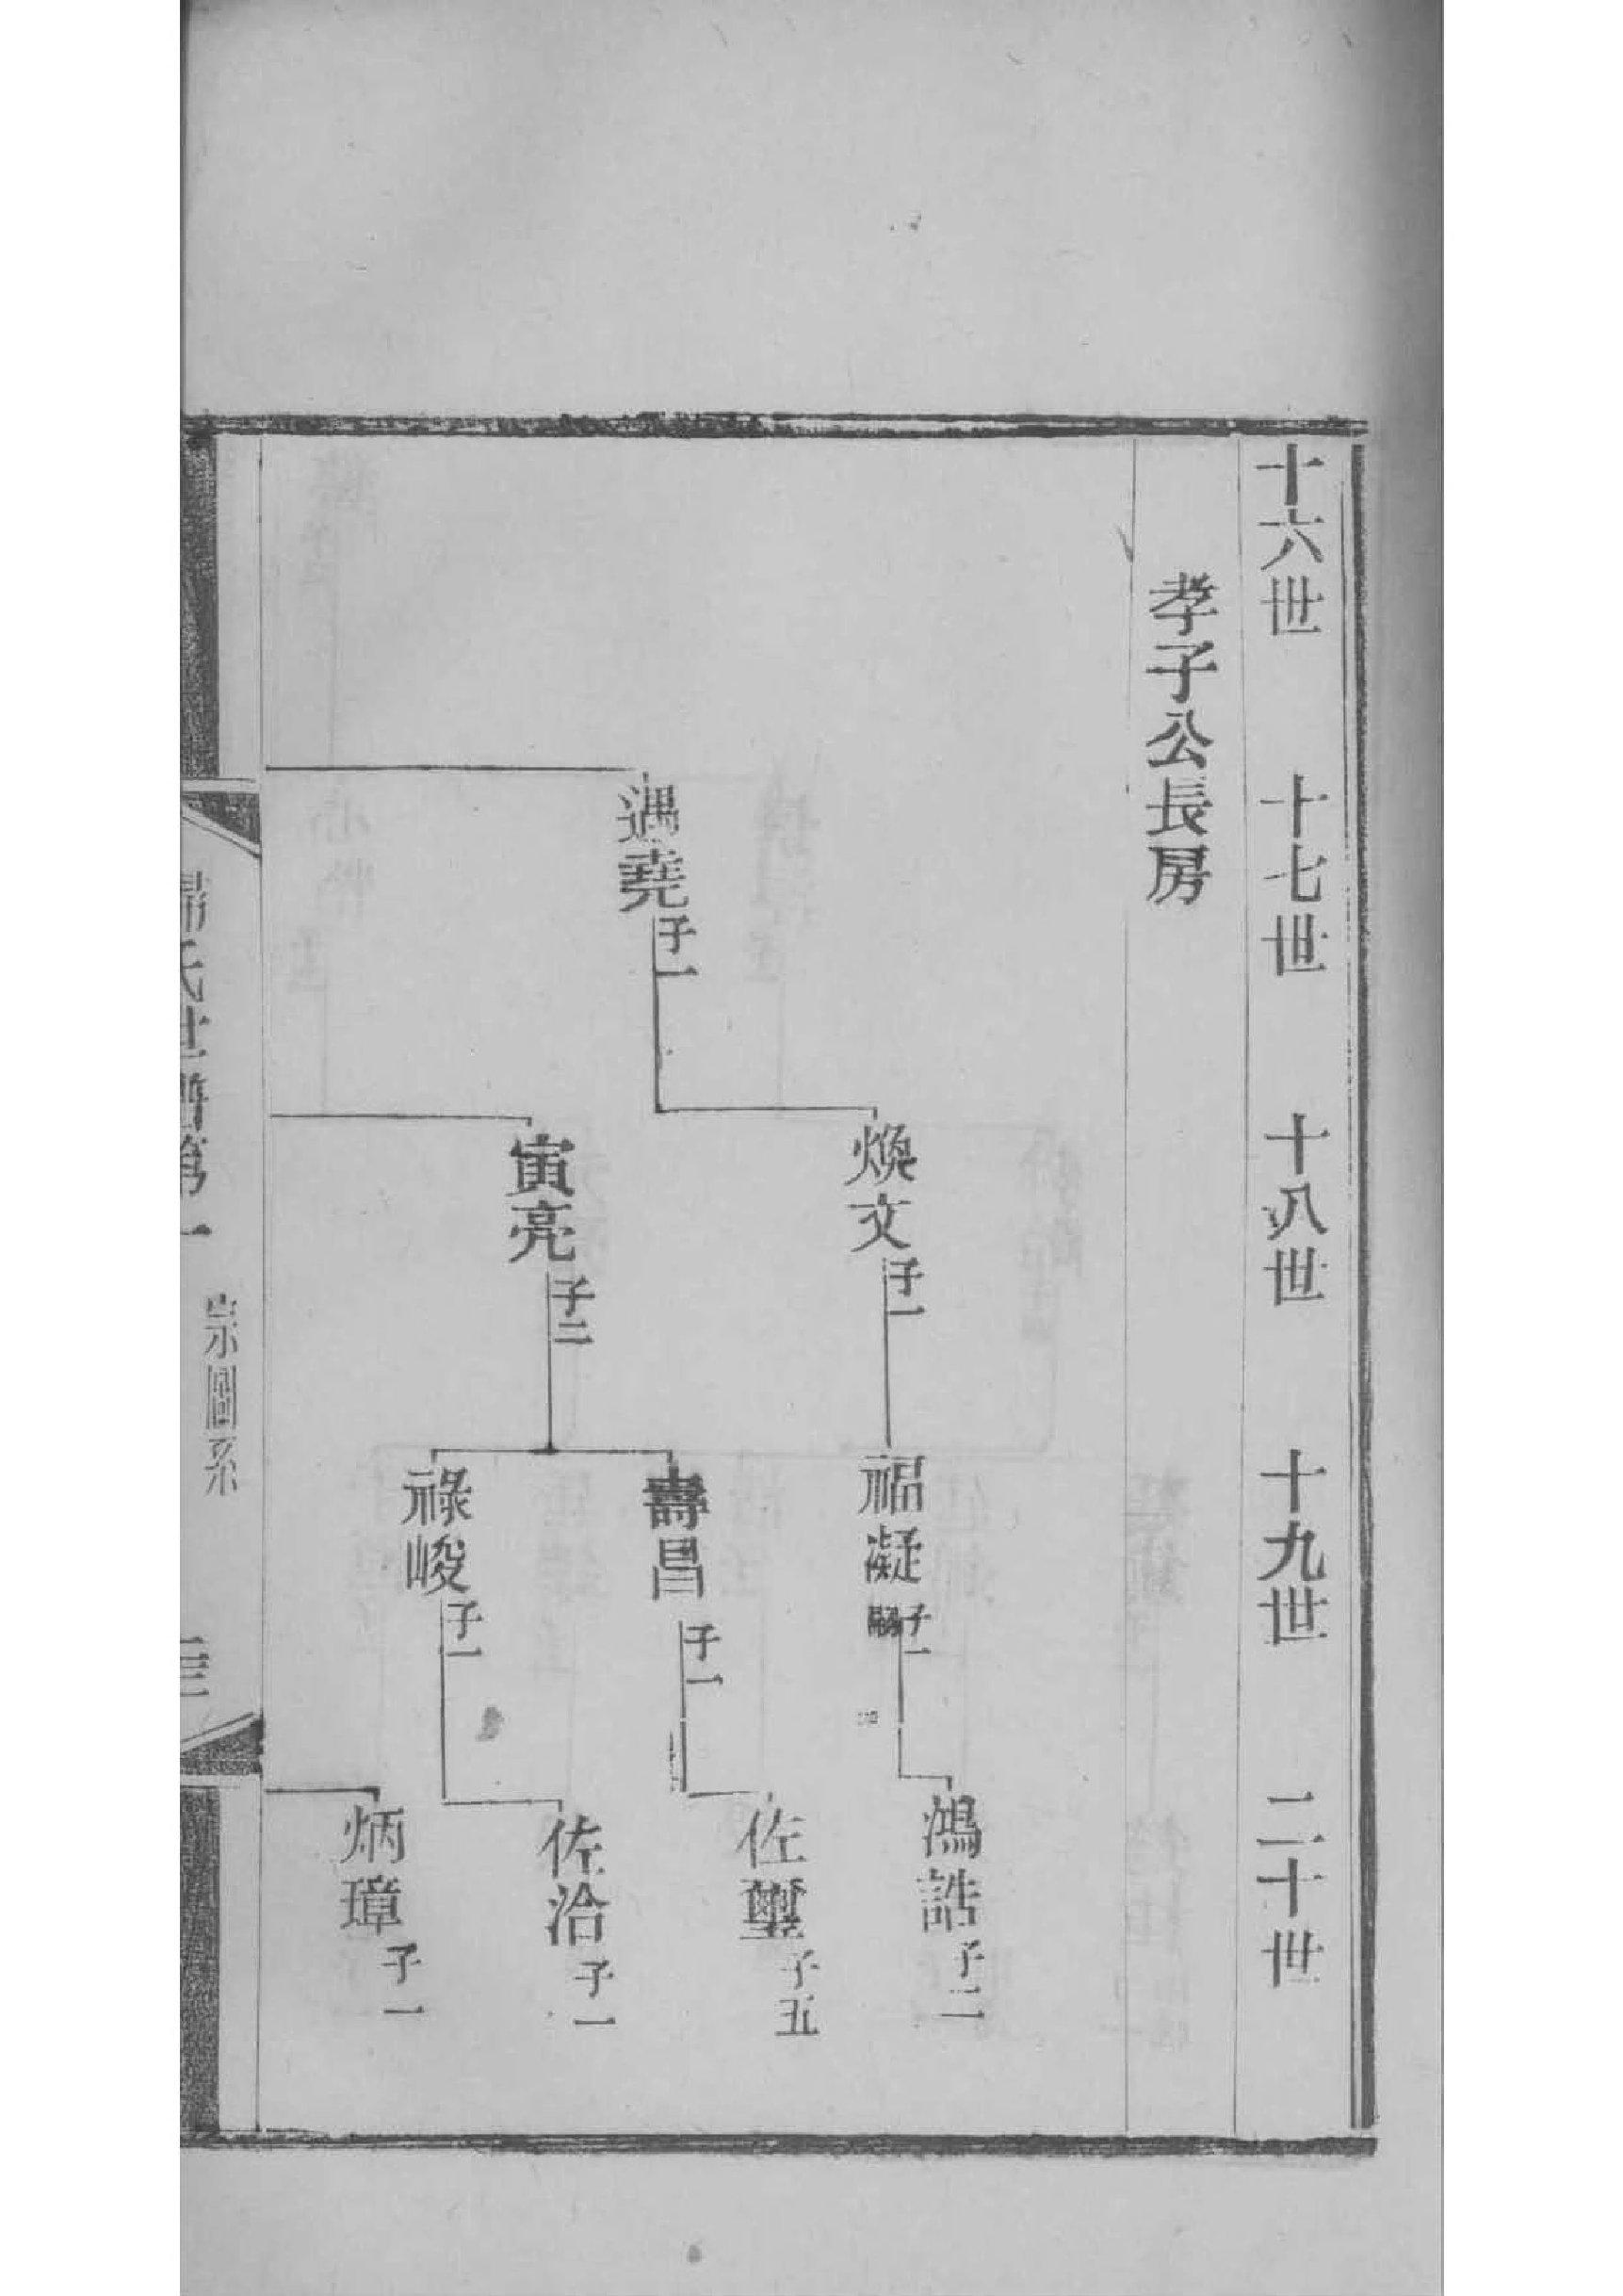 十六世 十七世 十八世 十九世 二十世
孝子公長房
遇堯 子一
煥文 子一
福凝 子一
鴻誥 子二
寅亮 子二
壽昌 子一
佐璽 子五
祿峻 子一
佐洽 子一
炳璋 子一
歸氏世譜第一
宗圖系